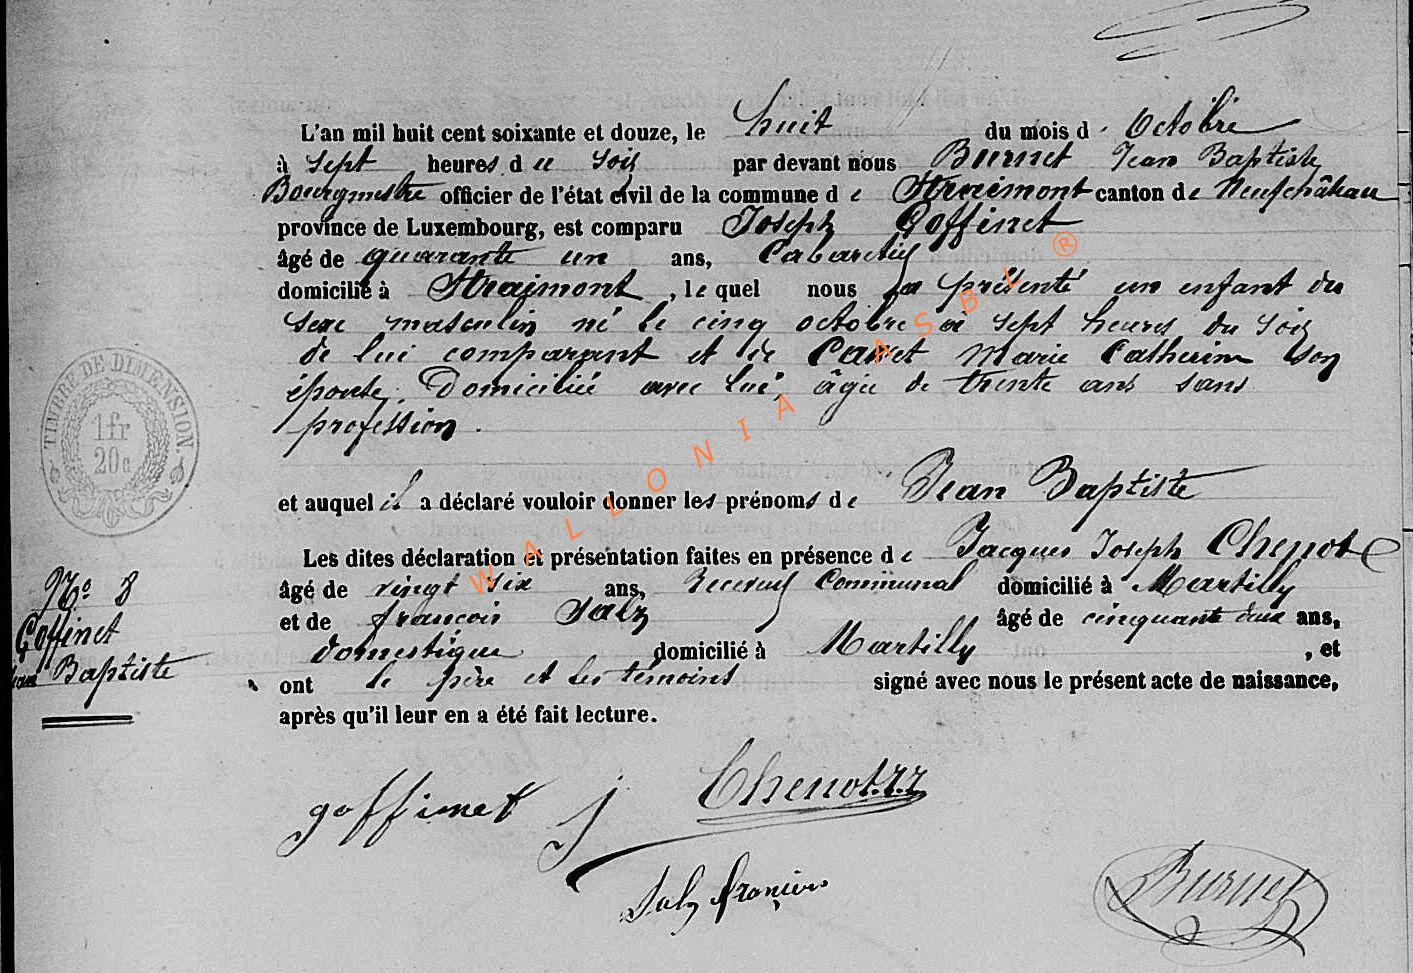 L'an mil huit cent soixante et douze, le huit du mois d' Octobre
à sept heures du soir par devant nous Burnet Jean Baptiste
Bourgmestre officier de l'état civil de la commune de Straimont canton de Neufchâteau
province de Luxembourg, est comparu Joseph Goffinet
âgé de quarante un ans, Cabaretier
domicilié à Straimont, lequel nous a présenté un enfant du
sexe masculin né le cinq octobre à sept heures du soir
de lui comparant et de Marie Catherine son
épouse, Domiciliée avec lui, âgée de trente ans sans
profession.
et auquel il a déclaré vouloir donner les prénoms de Jean Baptiste
Les dites déclaration et présentation faites en présence de Jacques Joseph Chenot
âgé de vingt six ans, Receveur Communal domicilié à Martilly
et de françois Salz âgé de cinquante deux ans,
domestique domicilié à Martilly, et
ont le père et les témoins signé avec nous le présent acte de naissance,
après qu'il leur en a été fait lecture.
TIMBRE DE DIMENSION.
1fr
20c
No. 8
Goffinet
Jean Baptiste
goffinet j
Chenot. J.J.
Salz françois
Burnet
WALLONIA ASBL ®